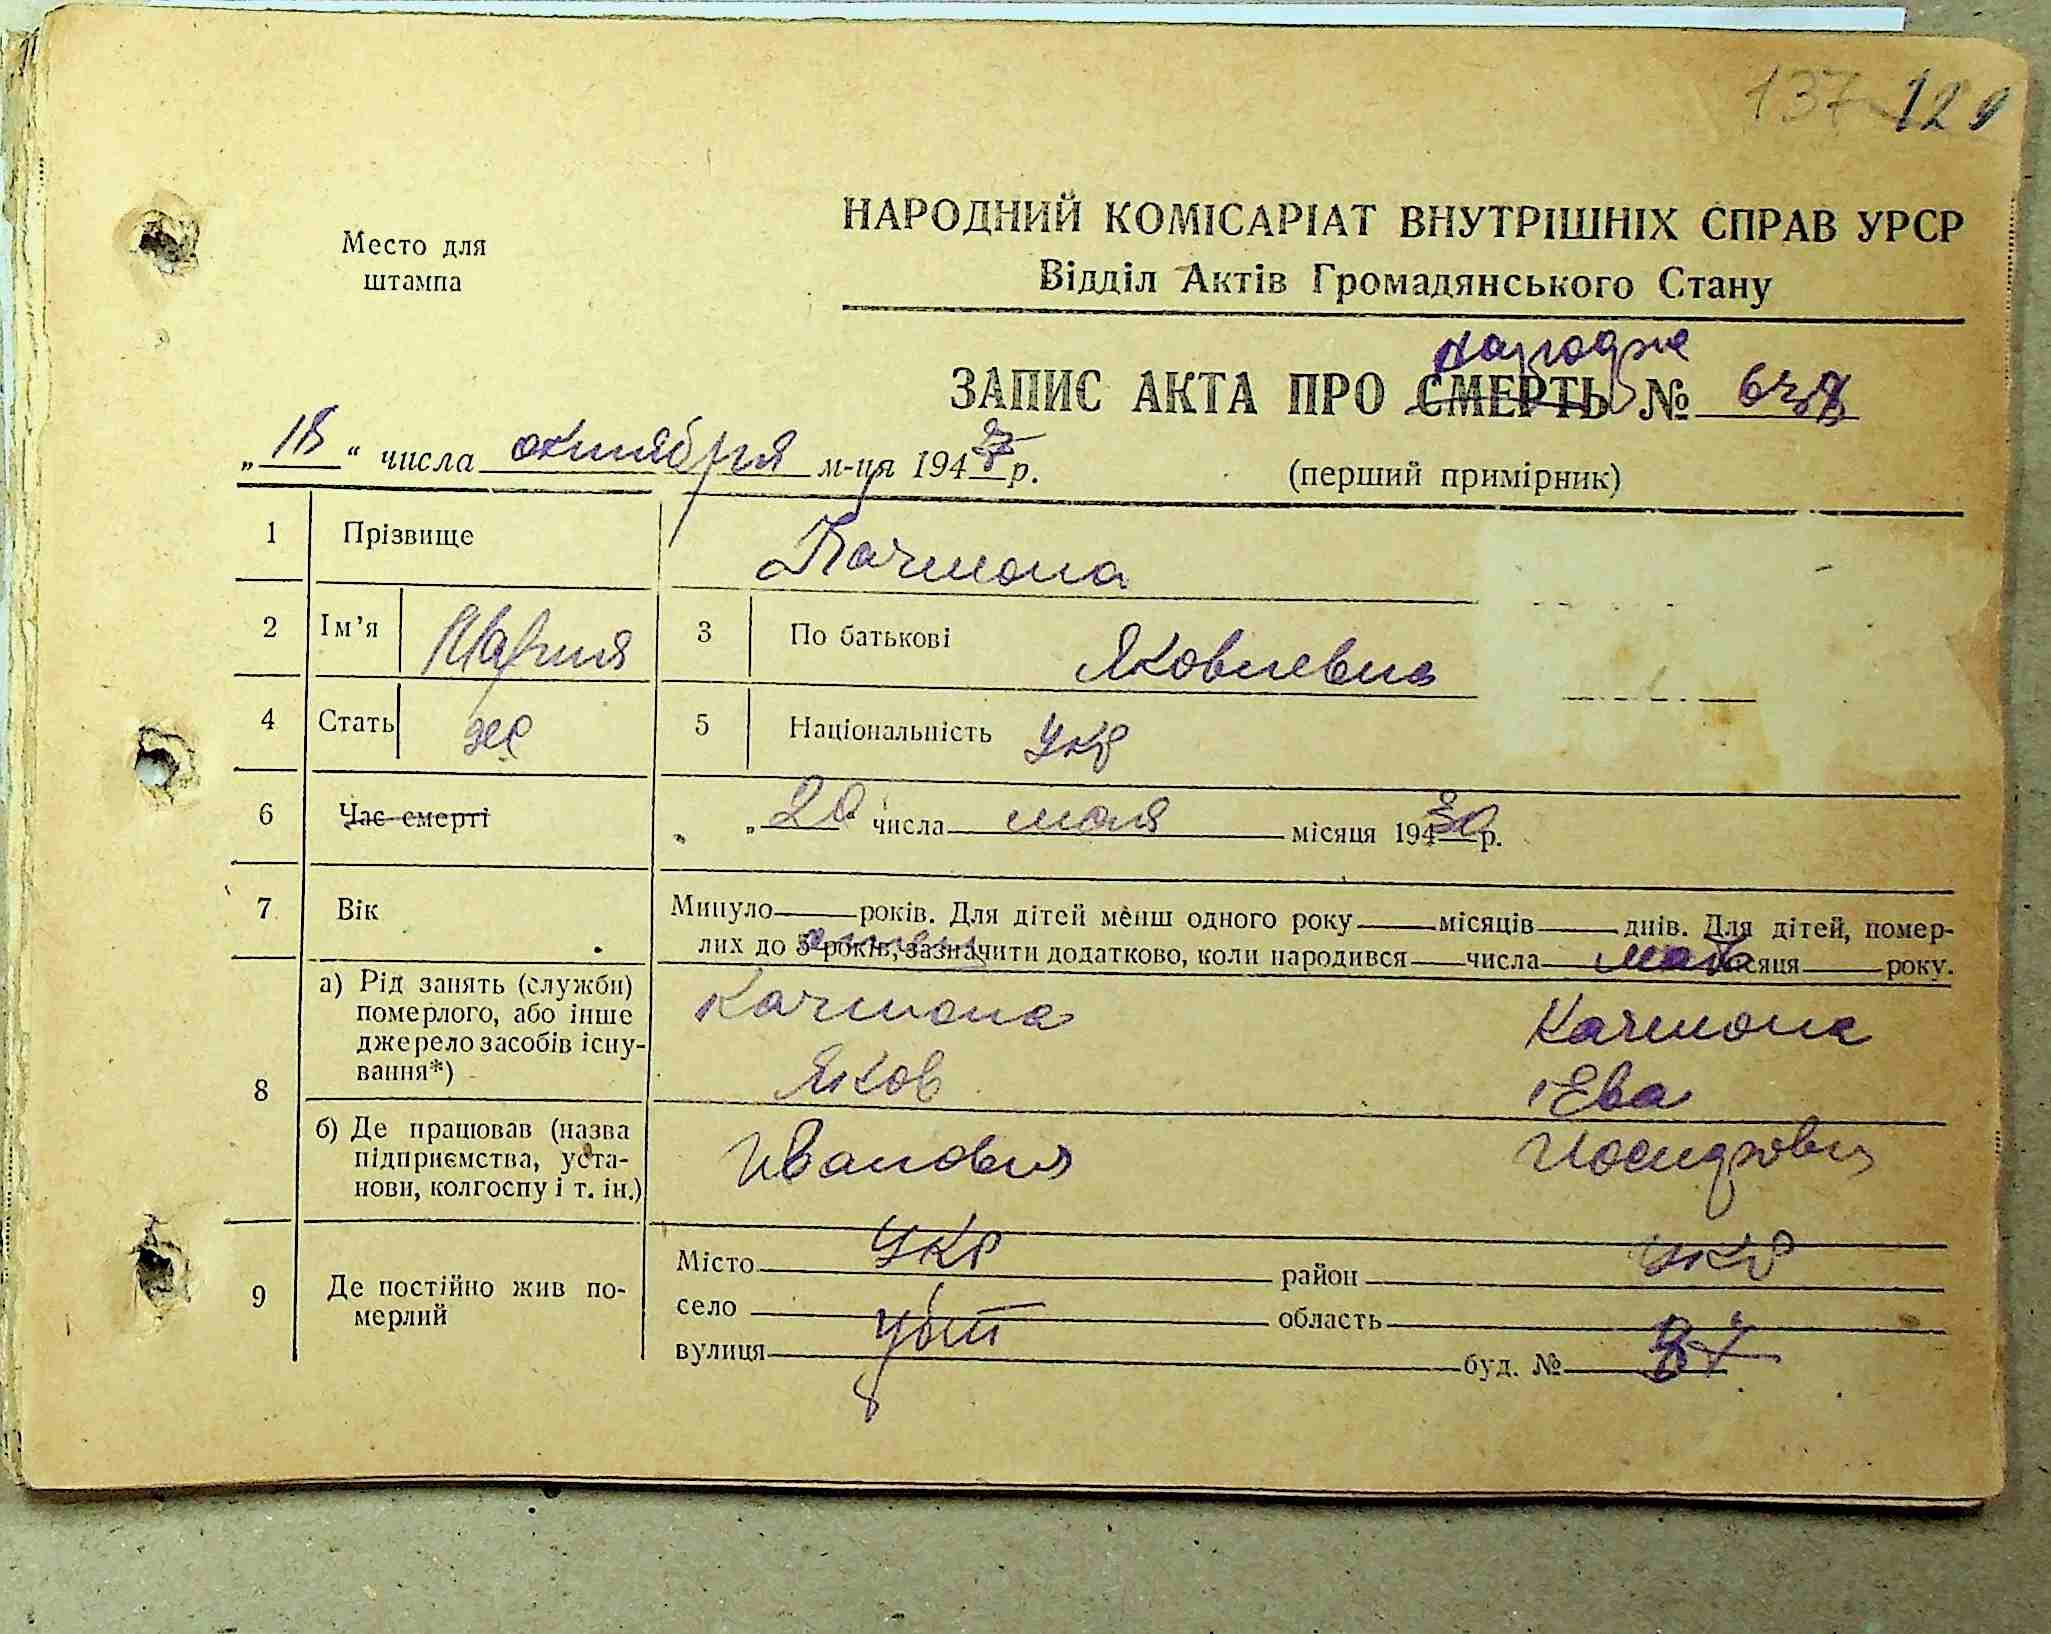 137 129
Место для
штампа
НАРОДНИЙ КОМІСАРІАТ ВНУТРІШНІХ СПРАВ УРСР
Відділ Актів Громадянського Стану
народже
ЗАПИС АКТА ПРО СМЕРТЬ №
„18“ числа октября м-ця 1947 р.
(перший примірник)
1 Прізвище Качмопа
2 Ім’я Мария 3 По батькові Яковлевна
4 Стать же 5 Національність укр
6 Час смерті „20“ числа мая місяця 194 30 р.
7 Вік Минуло років. Для дітей менш одного року місяців днів. Для дітей, помер-
лих до 5 років, зазначити додатково, коли народився числа місяця року.
отец мать
8 а) Рід занять (служби) померлого, або інше джерело засобів існування*)
Качмопа Качмопа
Яков Ева
б) Де працював (назва підприємства, установи, колгоспу і т. ін.)
Иванович Иосифовн
9 Де постійно жив померлий
Місто укр район укр
село область
вулиця буд. №